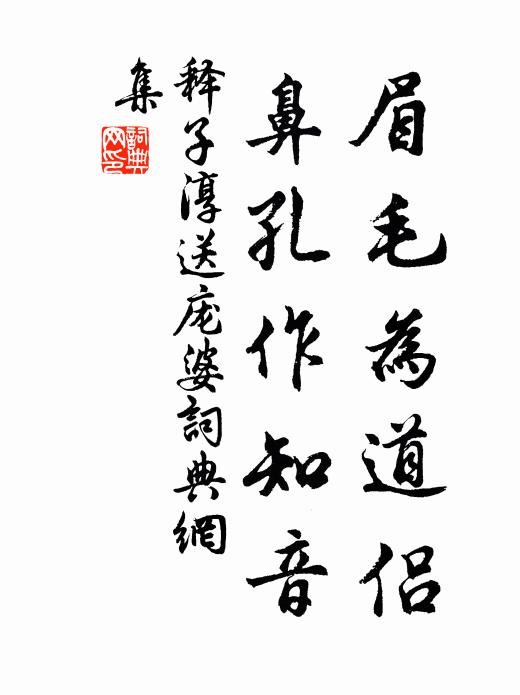 眉毛為道侶
鼻孔作知音
释子淳送庞婆詞典網
集
詞典
网印